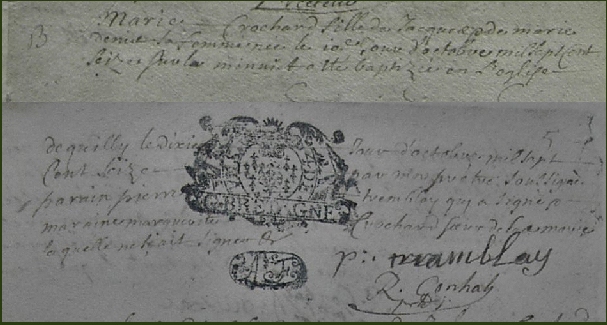 B
Marie Crochard fille de Jacques et de marie
denié sa femme née le 10e jour d'octobre mil sept Cent
seize sur la minuit a été baptizée en l'église
de quilly le dixie jour d'octobre mil sept
Cent seize par moy prêtre soussigné
parain pierre tremblay qui a signé
maraine marguerite Crochard sœur de la marie
laquelle ne scait signer
G. BRETAGNE
p: tramblay
R.